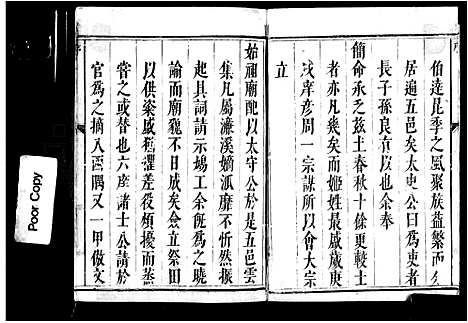 伯達昆季之風聚族益繁而分
居遍五邑矣太史公曰爲吏者
長子孫良有以矣奉
簡命承乏茲土春秋十餘更較士
者亦凡幾矣而姬姓最盛歲庚
戌岸彦周一宗謀所以會大宗
立
始祖廟配以太守公於是五邑雲
集凡屬濂溪嫡派靡不忻然振
起具詞請示塲工余旣爲之曉
諭而廟貌不日成矣僉立祭田
以供粢盛穪懼差役煩擾而蒸
嘗之或替也六庠諸士公請於
官爲之摘入酉隅又一甲倣文
Poor Copy